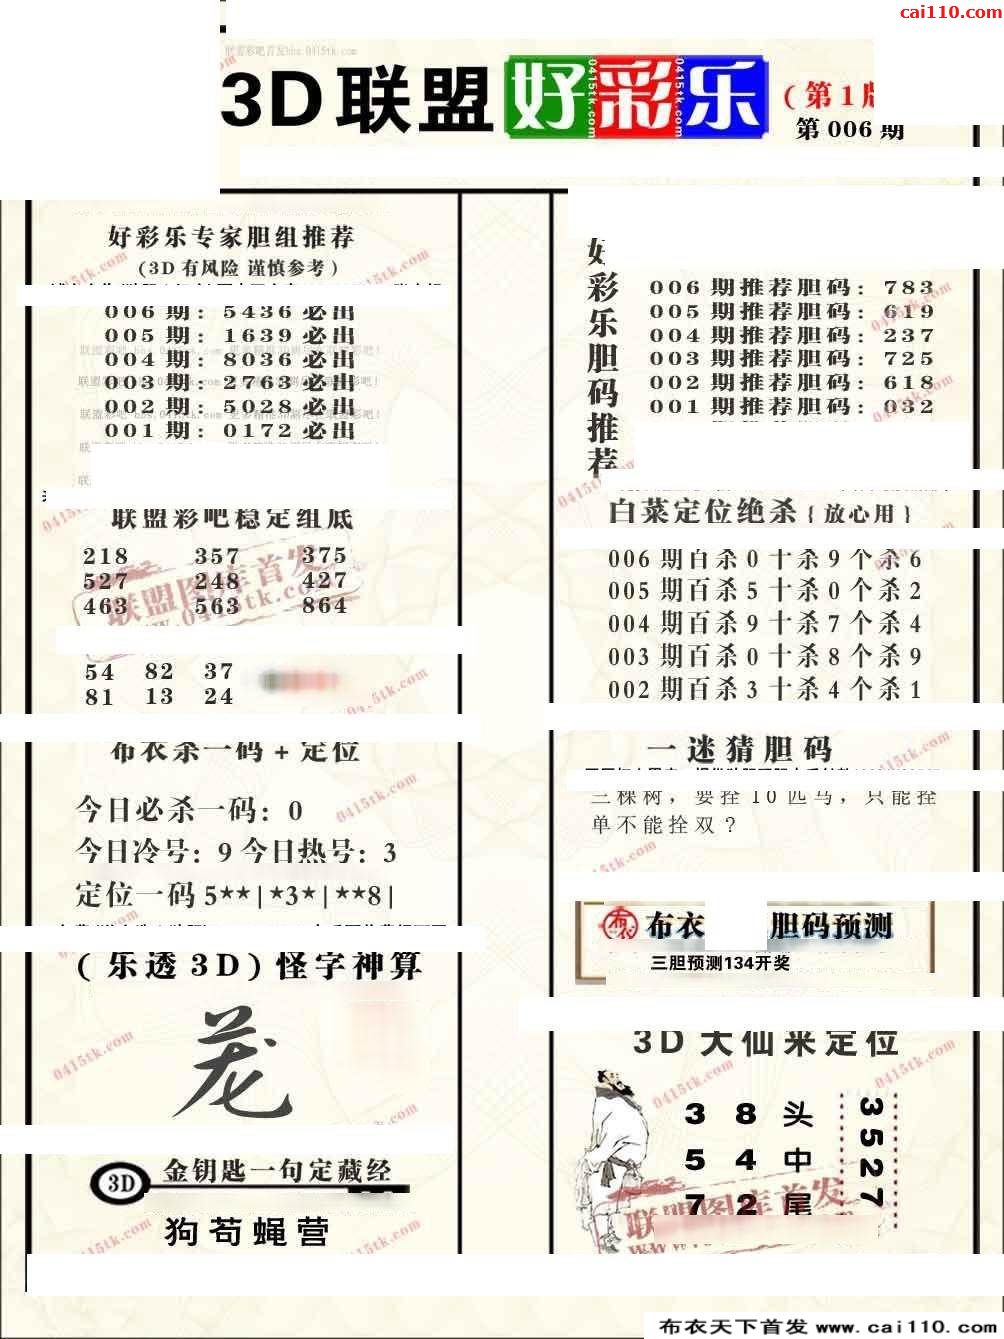 cai110.com
3D联盟好彩乐(第1版
第006期
好彩乐专家胆组推荐
(3D有风险 谨慎参考)
006期: 5436必出
005期: 1639必出
004期: 8036必出
003期: 2763必出
002期: 5028必出
001期: 0172必出
联盟彩吧稳定组底
218 357 375
527 248 427
463 563 864
54 82 37
81 13 24
布衣杀一码+定位
今日必杀一码: 0
今日冷号: 9 今日热号: 3
定位一码 5★★|★3★|★★8|
(乐透3D)怪字神算
3D 金钥匙一句定藏经
狗苟蝇营
好彩乐胆码推荐
006期推荐胆码: 783
005期推荐胆码: 619
004期推荐胆码: 237
003期推荐胆码: 725
002期推荐胆码: 618
001期推荐胆码: 032
白菜定位绝杀{放心用}
006期百杀0十杀9个杀6
005期百杀5十杀0个杀2
004期百杀9十杀7个杀4
003期百杀0十杀8个杀9
002期百杀3十杀4个杀1
一迷猜胆码
三棵树，要拴10匹马，只能拴
单不能拴双？
布衣 胆码预测
三胆预测134开奖
3D大仙来定位
3 8头
5 4中
7 2尾
3527
联盟图库首发
0415tk.com
布衣天下首发 www.cai110.com